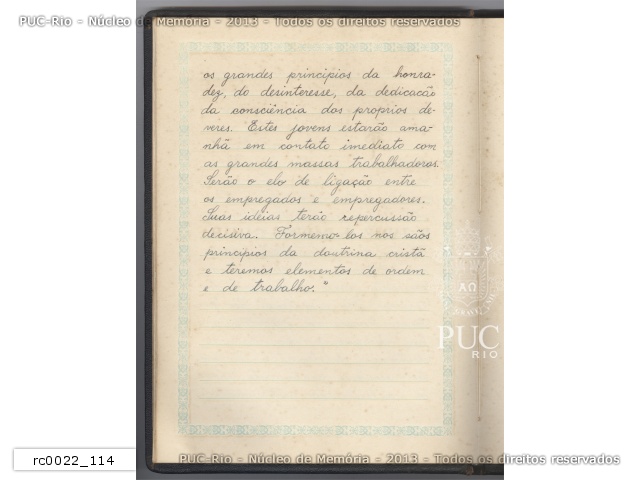 PUC-Rio - Núcleo de Memória - 2013 - Todos os direitos reservados
os grandes princípios da honra-
dez, do desinteresse, da dedicacão
da consciência dos proprios de-
veres. Estes jovens estarão ama-
nhã em contato imediato com
as grandes massas trabalhadoras.
Serão o elo de ligação entre
os empregados e empregadores.
Suas idéias terão repercussão
decisiva. Formemo-los nos sãos
princípios da doutrina cristã
e teremos elementos de ordem
e de trabalho."
ΑΩ
PUC
RIO
rc0022_114
PUC-Rio - Núcleo de Memória - 2013 - Todos os direitos reservados